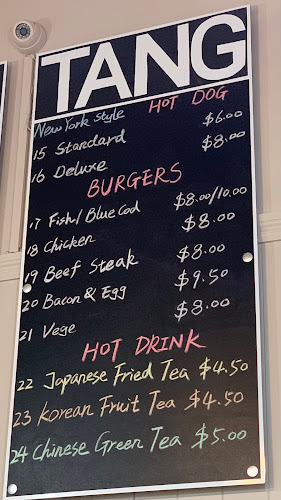 TANG
New York Style HOT DOG
15 Standard $6.00
16 Deluxe $8.00
BURGERS
17 Fish/Blue Cod $8.00/10.00
18 Chicken $8.00
19 Beef Steak $8.00
20 Bacon & Egg $9.50
21 Vege $8.00
HOT DRINK
22 Japanese Fried Tea $4.50
23 Korean Fruit Tea $4.50
24 Chinese Green Tea $5.00